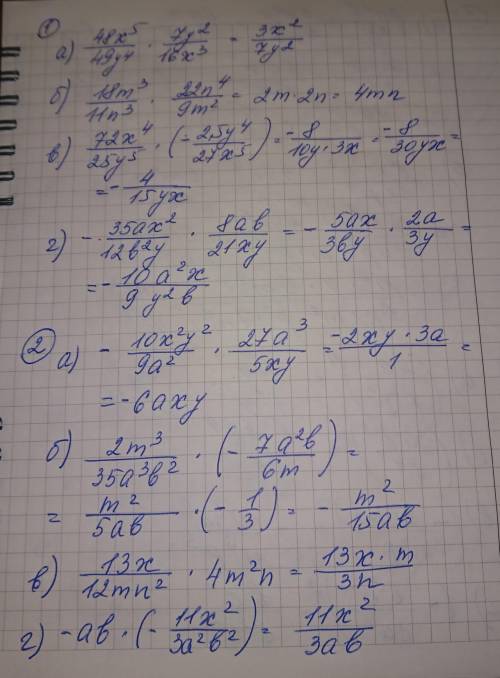 ①
а) 48x⁵/49y⁴ · 7y²/16x³ = 3x²/7y²
б) 18m³/11n³ · 22n⁴/9m² = 2m·2n = 4mn
в) 72x⁴/25y⁵ · (-2,5y⁴/27x⁵) = -8/10y·3x = -8/30yx =
= -4/15yx
г) -35ax²/12b²y · 8ab/21xy = -5ax/3by · 2a/3y =
= -10a²x/9y²b
② а) -10x²y²/9a² · 27a³/5xy = -2xy·3a/1 =
= -6axy
б) 2m³/35a³b² · (-7a²b/6m) =
= m²/5ab · (-1/3) = -m²/15ab
в) 13x/12mn² · 4m²n = 13x·m/3n
г) -ab · (-11x²/3a²b²) = 11x²/3ab